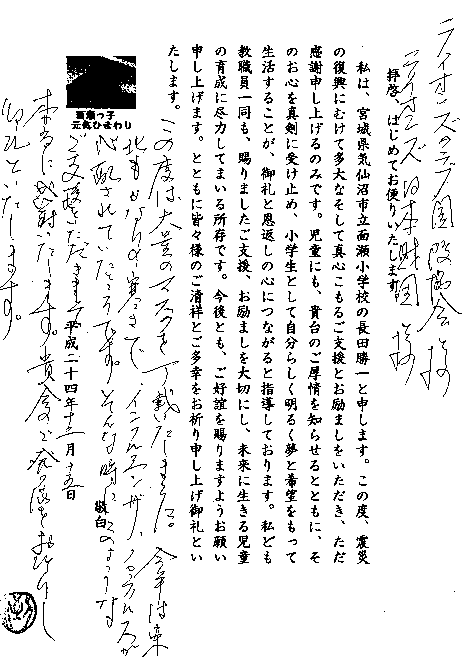 ライオンズ日本財団 様
拝啓 はじめてお便りいたします。
私は、宮城県気仙沼市立面瀬小学校の長田勝一と申します。この度、震災
の復興にむけて多大なそして真心こもるご支援とお励ましをいただき、ただ
感謝申し上げるのみです。児童にも、貴台のご厚情を知らせるとともに、そ
のお心を真剣に受け止め、小学生として自分らしく明るく夢と希望をもって
生活することが、御礼と恩返しの心につながると指導しております。私ども
教職員一同も、賜りましたご支援、お励ましを大切にし、未来に生きる児童
の育成に尽力してまいる所存です。今後とも、ご好誼を賜りますようお願い
申し上げます。とともに皆々様のご清祥とご多幸をお祈り申し上げ御礼とい
たします。
面瀬っ子
元気ひまわり
この度は大量のマスクを下戴いたしました。今年は東
北もかなりの寒さで、インフルエンザ、ノロウイルスが
心配されていたところです。そんな時にこのような
ご支援をいただきまして
敬白
平成二十四年十二月
本当に感謝いたします。貴会のご発展をお祈りし
御礼といたします。